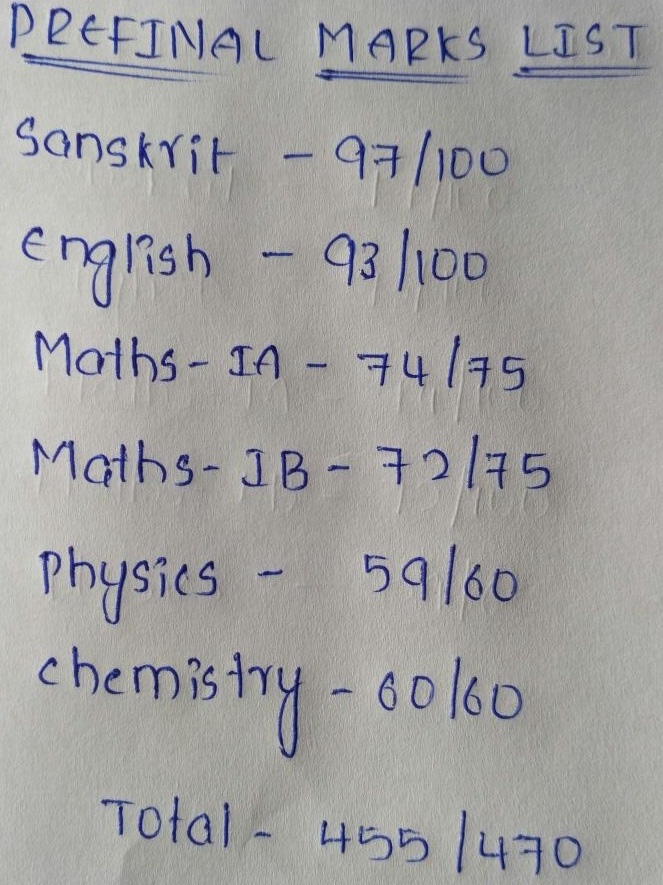 PREFINAL MARKS LIST
Sanskrit - 97/100
English - 93/100
Maths - IA - 74/75
Maths - IB - 72/75
Physics - 59/60
chemistry - 60/60
Total - 455/470